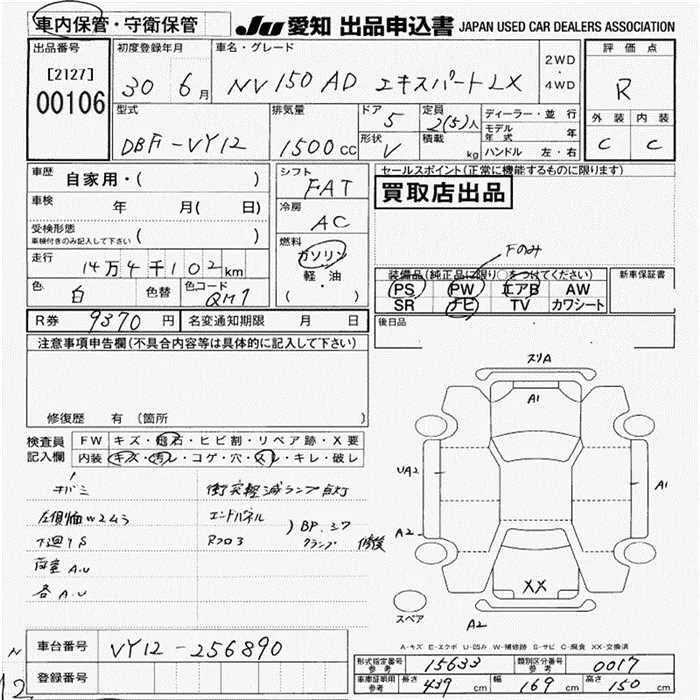 車内保管・守衛保管
JU 愛知 出品申込書 JAPAN USED CAR DEALERS ASSOCIATION
出品番号
[2127]
00106
初度登録年月
30 6月
車名・グレード
NV150 AD エキスパートLX
2WD
・
4WD
評価点
R
外装 内装
C C
型式
DBF-VY12
排気量
1500cc
ドア
5
形状
V
定員
2(5)人
積載
kg
ディーラー・並行
モデル年式 年
ハンドル 左・右
車歴
自家用・( )
車検
年 月( 日)
受検形態
車検付きのみ記入して下さい ( )
走行
14万4千102km
色
白
色替
色コード
QM1
シフト
FAT
冷房
AC
燃料
ガソリン
軽・油
( ・ )
セールスポイント(正常に機能するものに限ります)
買取店出品
Fのみ
装備品(純正品に限り○をつけてください)
PS PW エアB AW
SR ナビ TV カワシート
新車保証書
後日品
R券 9370円
名変通知期限 月 日
注意事項申告欄(不具合内容等は具体的に記入して下さい)
修復歴 有 (箇所 )
検査員
記入欄
FW キズ・飛石・ヒビ割・リペア跡・X要
内装 キズ・汚レ・コゲ・穴・スレ・キレ・破レ
衝突軽減ランプ点灯
エンドパネル
Rフロ3
BP.シワ
クランプ 修後
下廻りS
荷室A.U
各A.U
スリA
A1
UA2
A1
A2
XX
スペア
A2
A-キズ E-エクボ U-凹み W-補修跡 S-サビ C-腐食 XX-交換済
車台番号 VY12-256890
登録番号
N
12
形式指定番号
参考 15633
類別区分番号
参考 0017
車庫証明用
参考
長さ 439 cm
幅 169 cm
高さ 150 cm